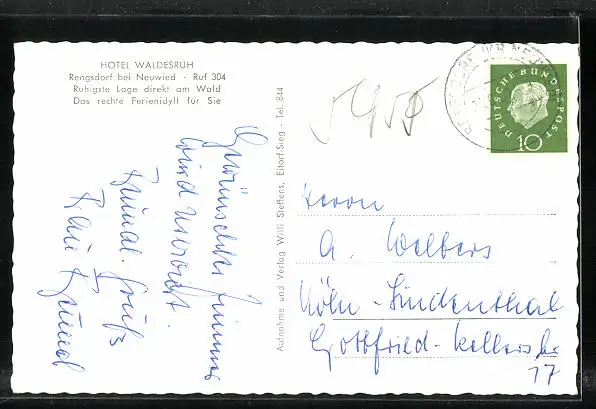 HOTEL WALDESRUH
Rengsdorf bei Neuwied · Ruf 304
Ruhigste Lage direkt am Wald
Das rechte Ferienidyll für Sie
Gewünschtes Zimmer
wird reserviert.
Freundl. Grüße
Aufnahme und Verlag Willi Steffens, Eitorf-Sieg · Tel. 844
DEUTSCHE BUNDESPOST
10
Herrn
A. Welbers
Köln-Lindenthal
Gottfried-Kellerstr.
17